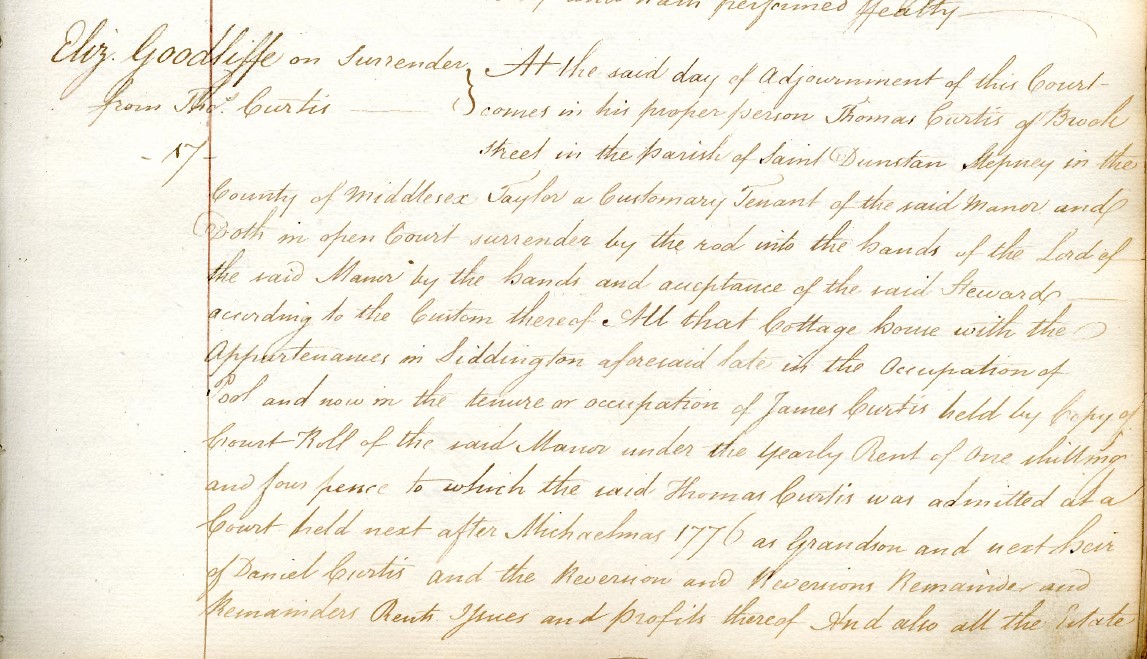 and hath performed ffealty
Eliz. Goodliffe on Surrender
from Thos. Curtis
- 17 -
At the said day of Adjournment of this Court
comes in his proper person Thomas Curtis of Brook
Street in the Parish of Saint Dunstan Stepney in the
County of Middlesex Taylor a Customary Tenant of the said Manor and
Doth in open Court surrender by the rod into the hands of the Lord of
the said Manor by the hands and acceptance of the said Steward
according to the Custom thereof All that Cottage house with the
Appurtenances in Liddington aforesaid late in the Occupation of
Pool and now in the tenure or occupation of James Curtis held by Copy of
Court Roll of the said Manor under the yearly Rent of One shilling
and four pence to which the said Thomas Curtis was admitted at a
Court held next after Michaelmas 1776 as Grandson and next heir
of Daniel Curtis and the Reversion and Reversions Remainder and
Remainders Rents Issues and Profits thereof And also all the Estate